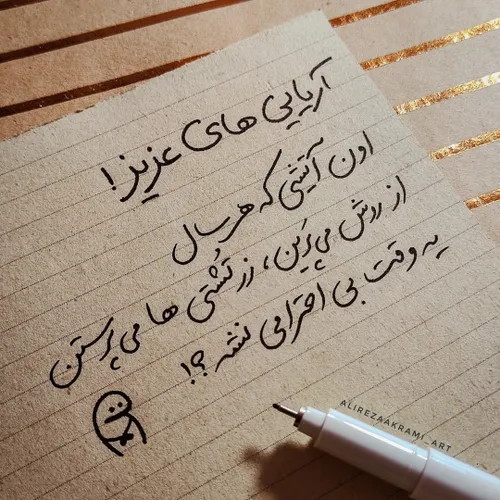 آریایی های عزیز!
اون آتیشی که هر سال
از روش می‌پَرین، زرتُشتی ها می‌پرستن
یه وقت بی احترامی نشه؟!
ALIREZAAKRAMI_ART